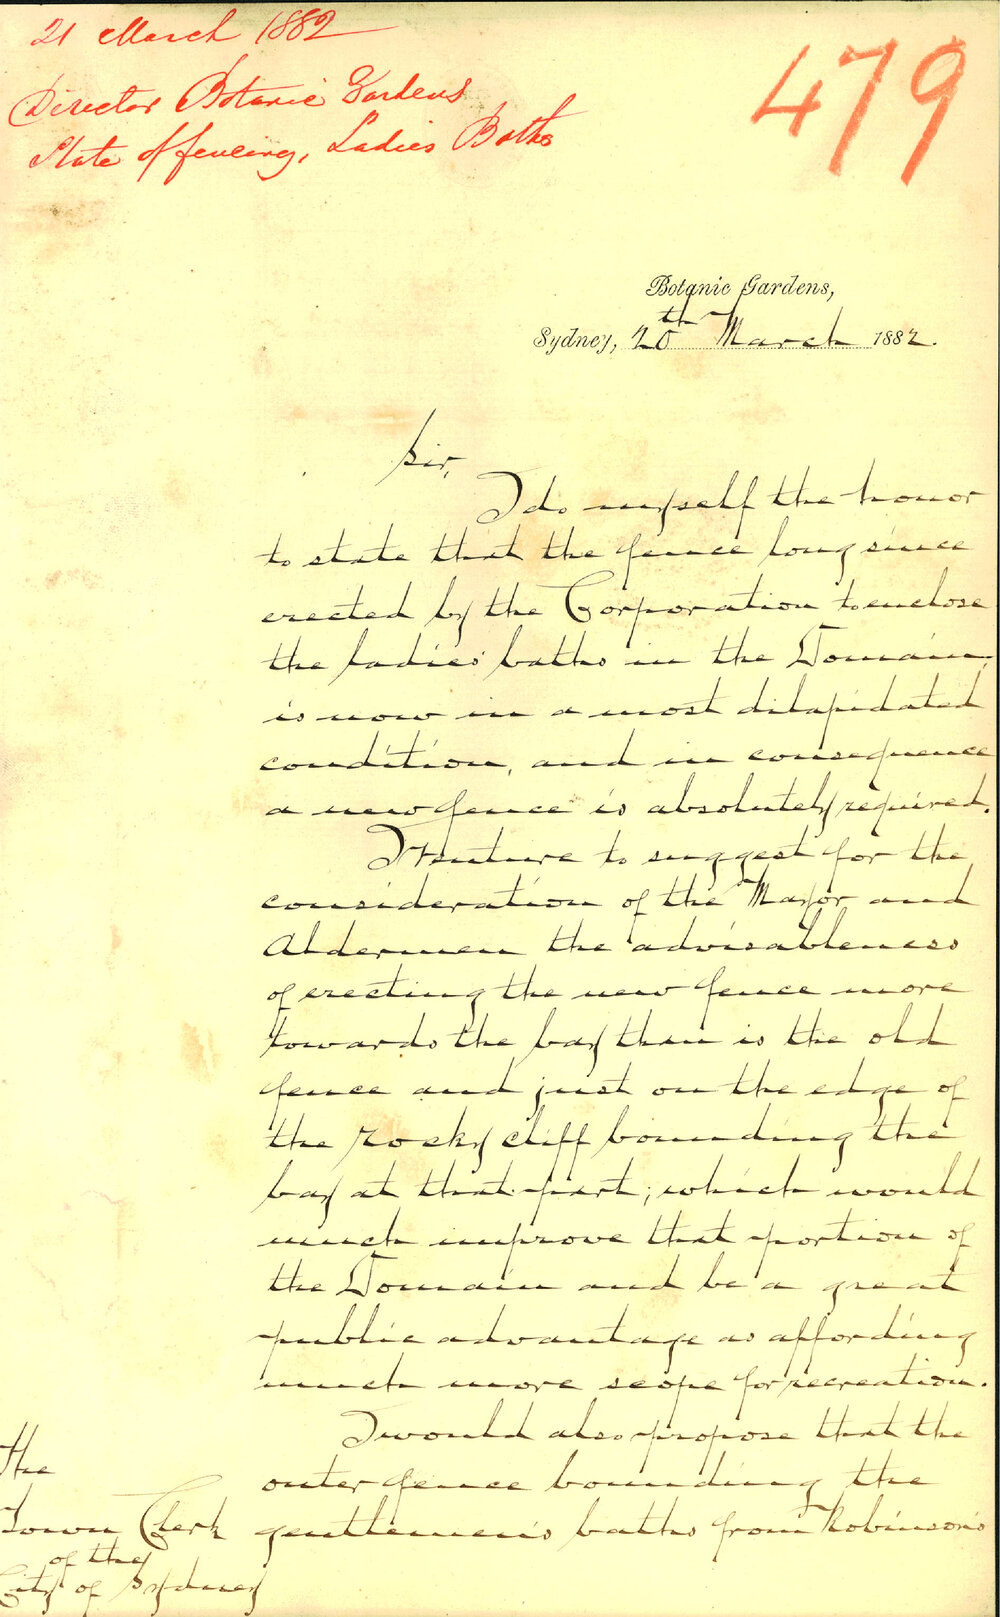 21 March 1882
Director Botanic Gardens
State of fencing, Ladies Baths
479
Botanic Gardens,
Sydney, 20th March 1882.
Sir,
I do myself the honor
to state that the fence long since
erected by the Corporation to enclose
the ladies' baths in the Domain,
is now in a most dilapidated
condition, and in consequence
a new fence is absolutely required.
I venture to suggest for the
consideration of the Mayor and
Aldermen the advisableness
of erecting the new fence more
towards the bay than is the old
fence and just on the edge of
the rocky cliff bounding the
bay at that part; which would
much improve that portion of
the Domain and be a great
public advantage as affording
much more scope for recreation.
I would also propose that the
outer fence bounding the
gentlemen's baths from Robinson's
The
Town Clerk
of the
City of Sydney